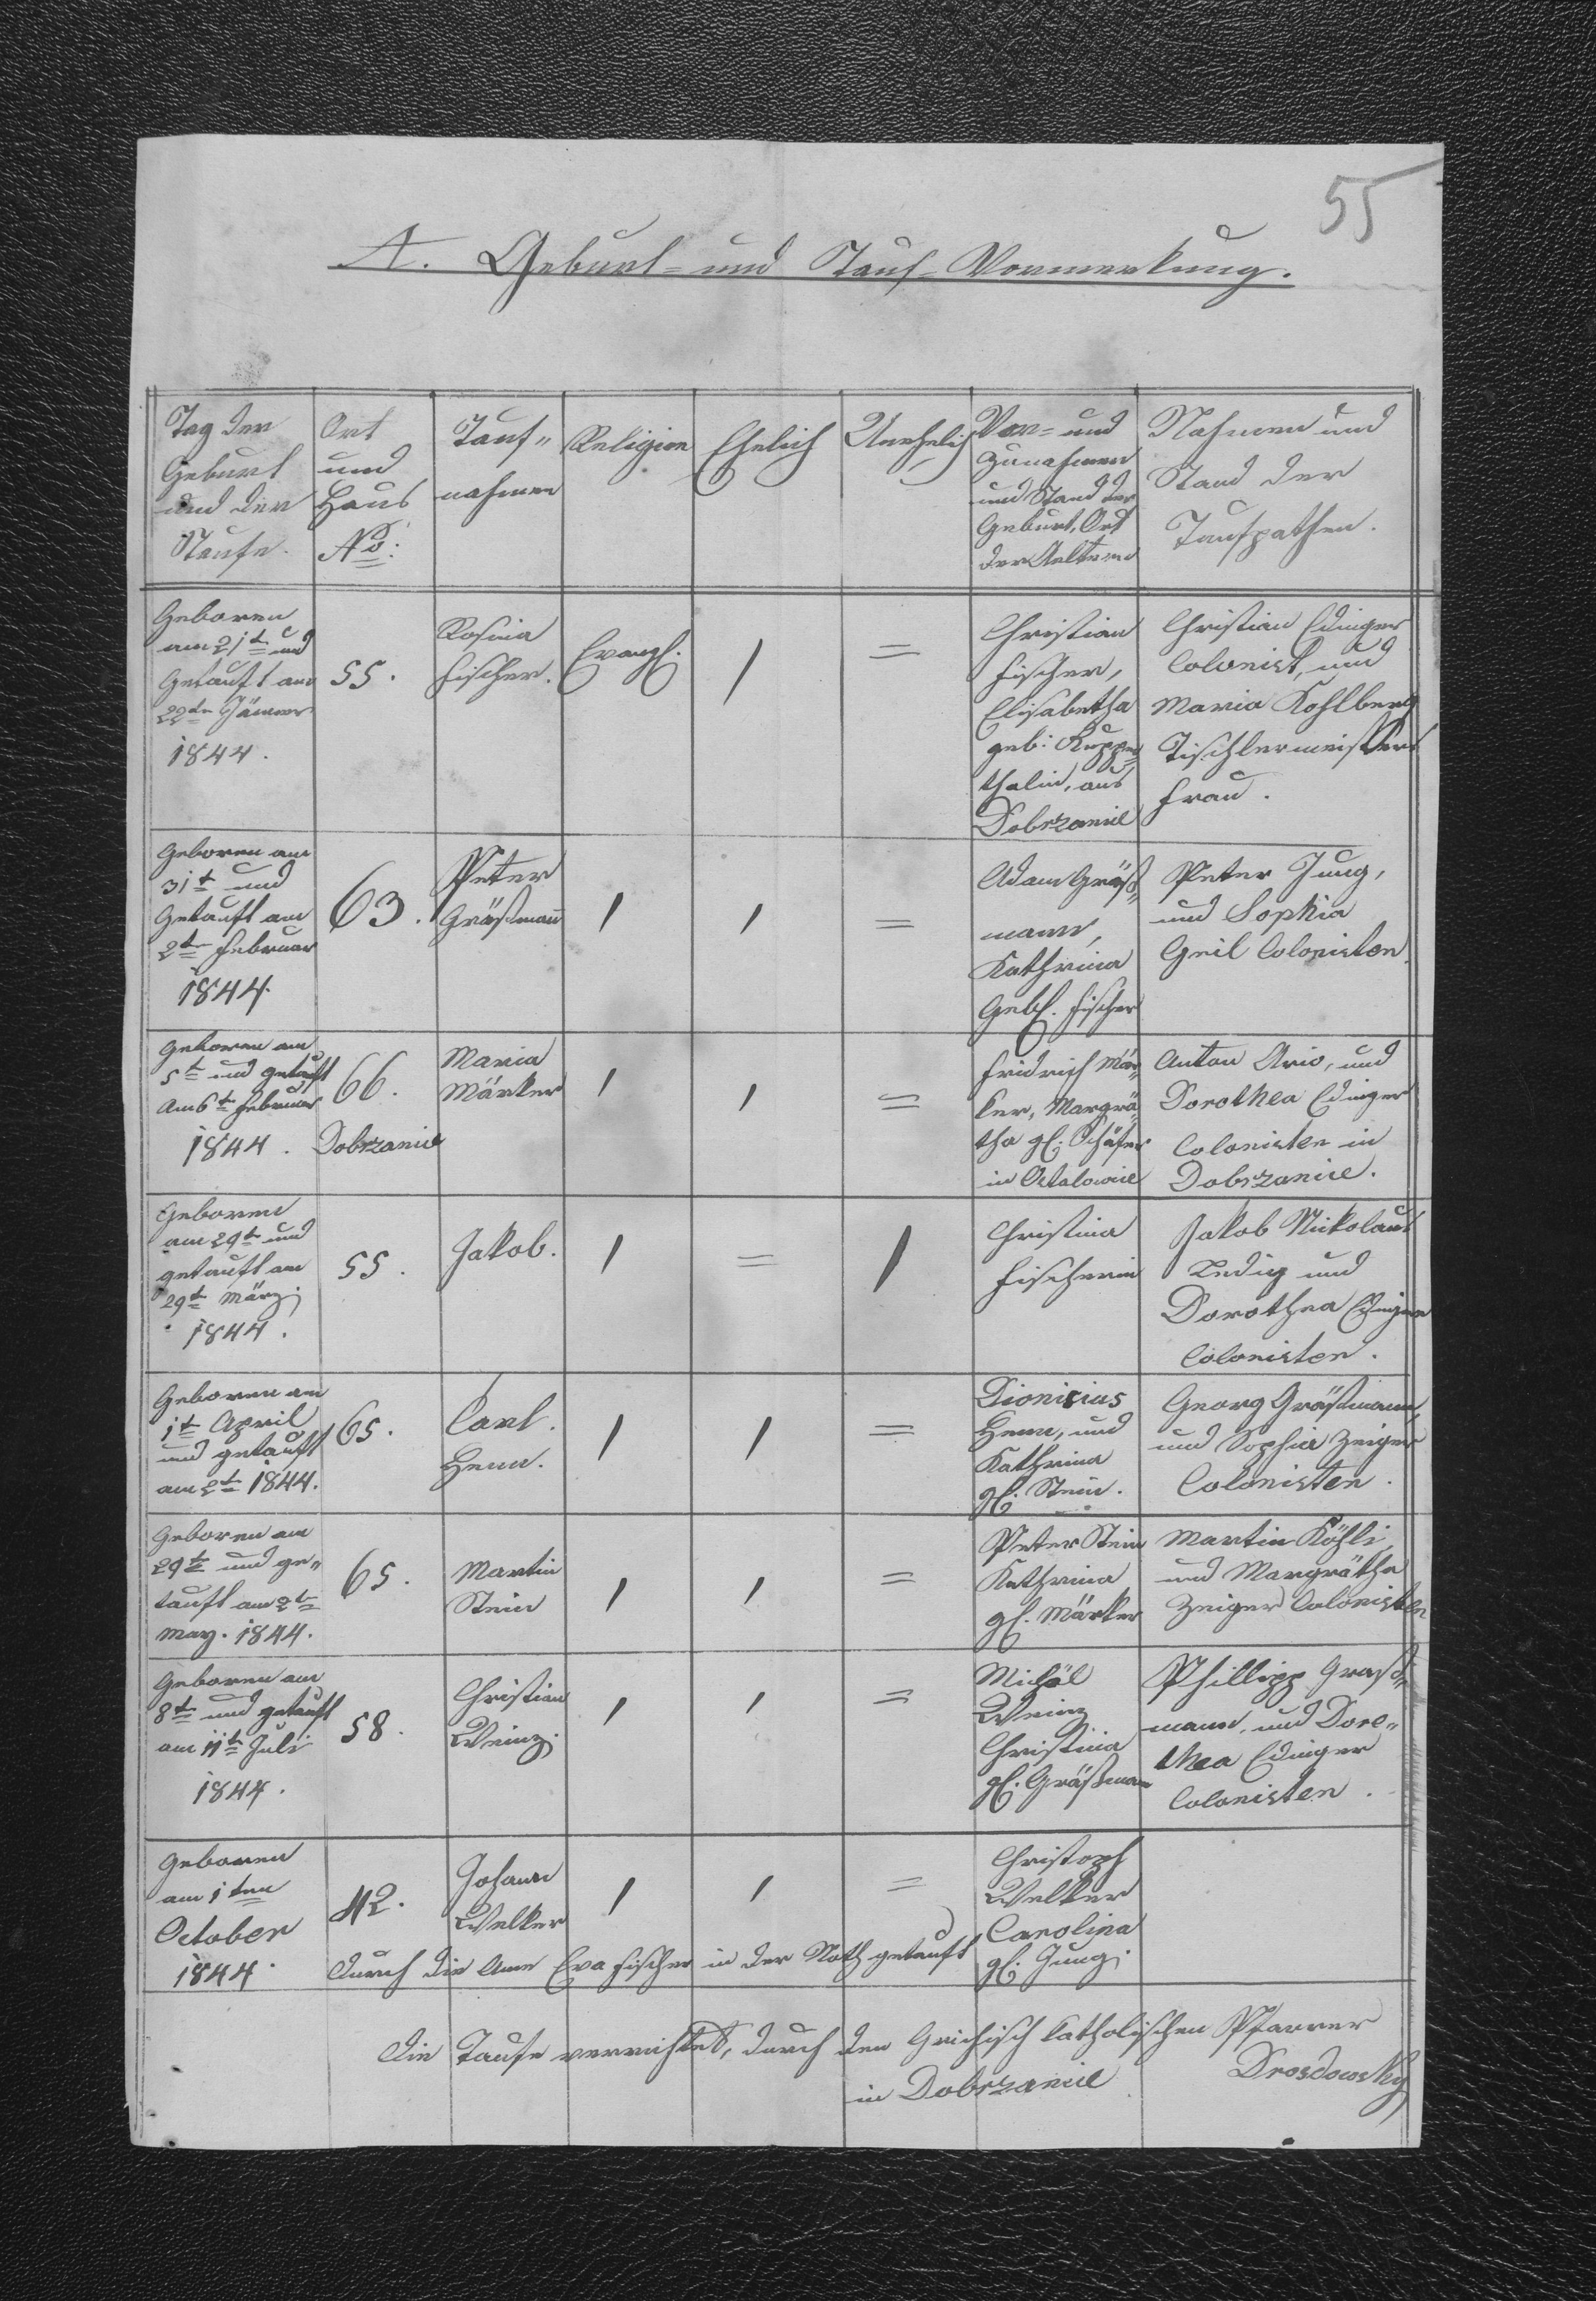 55
A. Geburt= und Tauf-Vormerkung.
Tag der
Geburt
und der
Taufe.
Ort
und
Haus
No:
Tauf"
nahmen
Religion
Ehelich
Unehelich
Vor= und
Zunahmen
und Stand der
Geburt, Ort
der Aeltern
Nahmen und
Stand der
Taufpathen.
Geboren
am 21t und
Getauft am
22tn Jänner
1844.
55.
Rosina
Fischer.
Evangl.
/
=
Christian
Fischer,
Elisabetha
geb: Kuppen=
thalin, aus
Dobrzanice
Christian Edinger
Colonist, und
Maria Kohlberg
Tischlermeisters
Frau.
Geboren am
31t und
Getauft am
2tn Februar
1844.
63.
Peter
Gräßmann
/
/
=
Adam Gräß"
mann,
Kathrina
Geb. Fischer
Peter Jung,
und Sophia
Geil Colonisten.
Geboren am
5t und getauft
am 6t Februar
1844.
66.
Dobrzanice
Maria
Märker
/
/
=
Fridrich Mär"
ker, Margrä"
tha gb. Schäfer
in
Anton Ario, und
Dorothea Edinger
Colonisten in
Dobrzanice.
Geboren
am 29t und
getauft am
29t März
1844.
55.
Jakob.
/
=
/
Christina
Fischerin
Jakob Nikolaus
Ledig und
Dorothea Edinger
Colonisten.
Geboren am
1t April
und getauft
am 2t 1844.
65.
Carl.
Henn.
/
/
=
Dionisius
Henn, und
Kathrina
gb. Stein.
Georg Gräßmann,
und Sophia Zeiger
Colonisten.
Geboren am
29tn und ge"
tauft am 2tn
May. 1844.
65.
Martin
Stein
/
/
=
Peter Stein
Kathrina
gb. Märker
Martin Köhli
und Margrätha
Zeiger Colonisten
Geboren am
8tn und getauft
am 11t Juli
1844.
58.
Christian
Weinz.
/
/
=
Michäl
Weinz
Christina
gb. Gräßmann
Phillipp Graß"
mann, und Doro"
thea Edinger
Colonisten.
Geboren
am 1ten
October
1844.
42.
Johann
Welker
/
/
=
Christoph
Welker
Carolina
gb. Jung.
durch die Ame Eva Fischer in der Noth getauft
die Taufe verrichtet, durch den Grichisch Katholischen Pfarrer
in Dobrzanice Drosdowsky